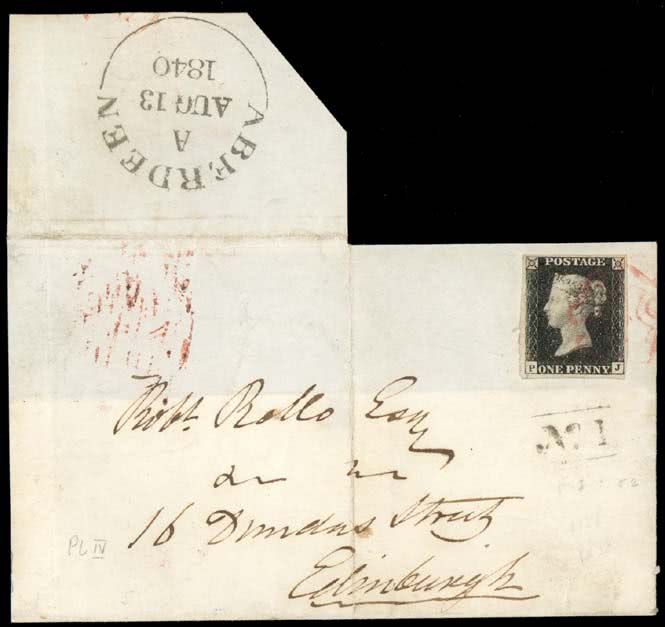 ABERDEEN
A
AUG 13
1840
POSTAGE
P ONE PENNY J
Robt. Rollo Esq
16 Dundas Street
Edinburgh
No. 1
PL IV